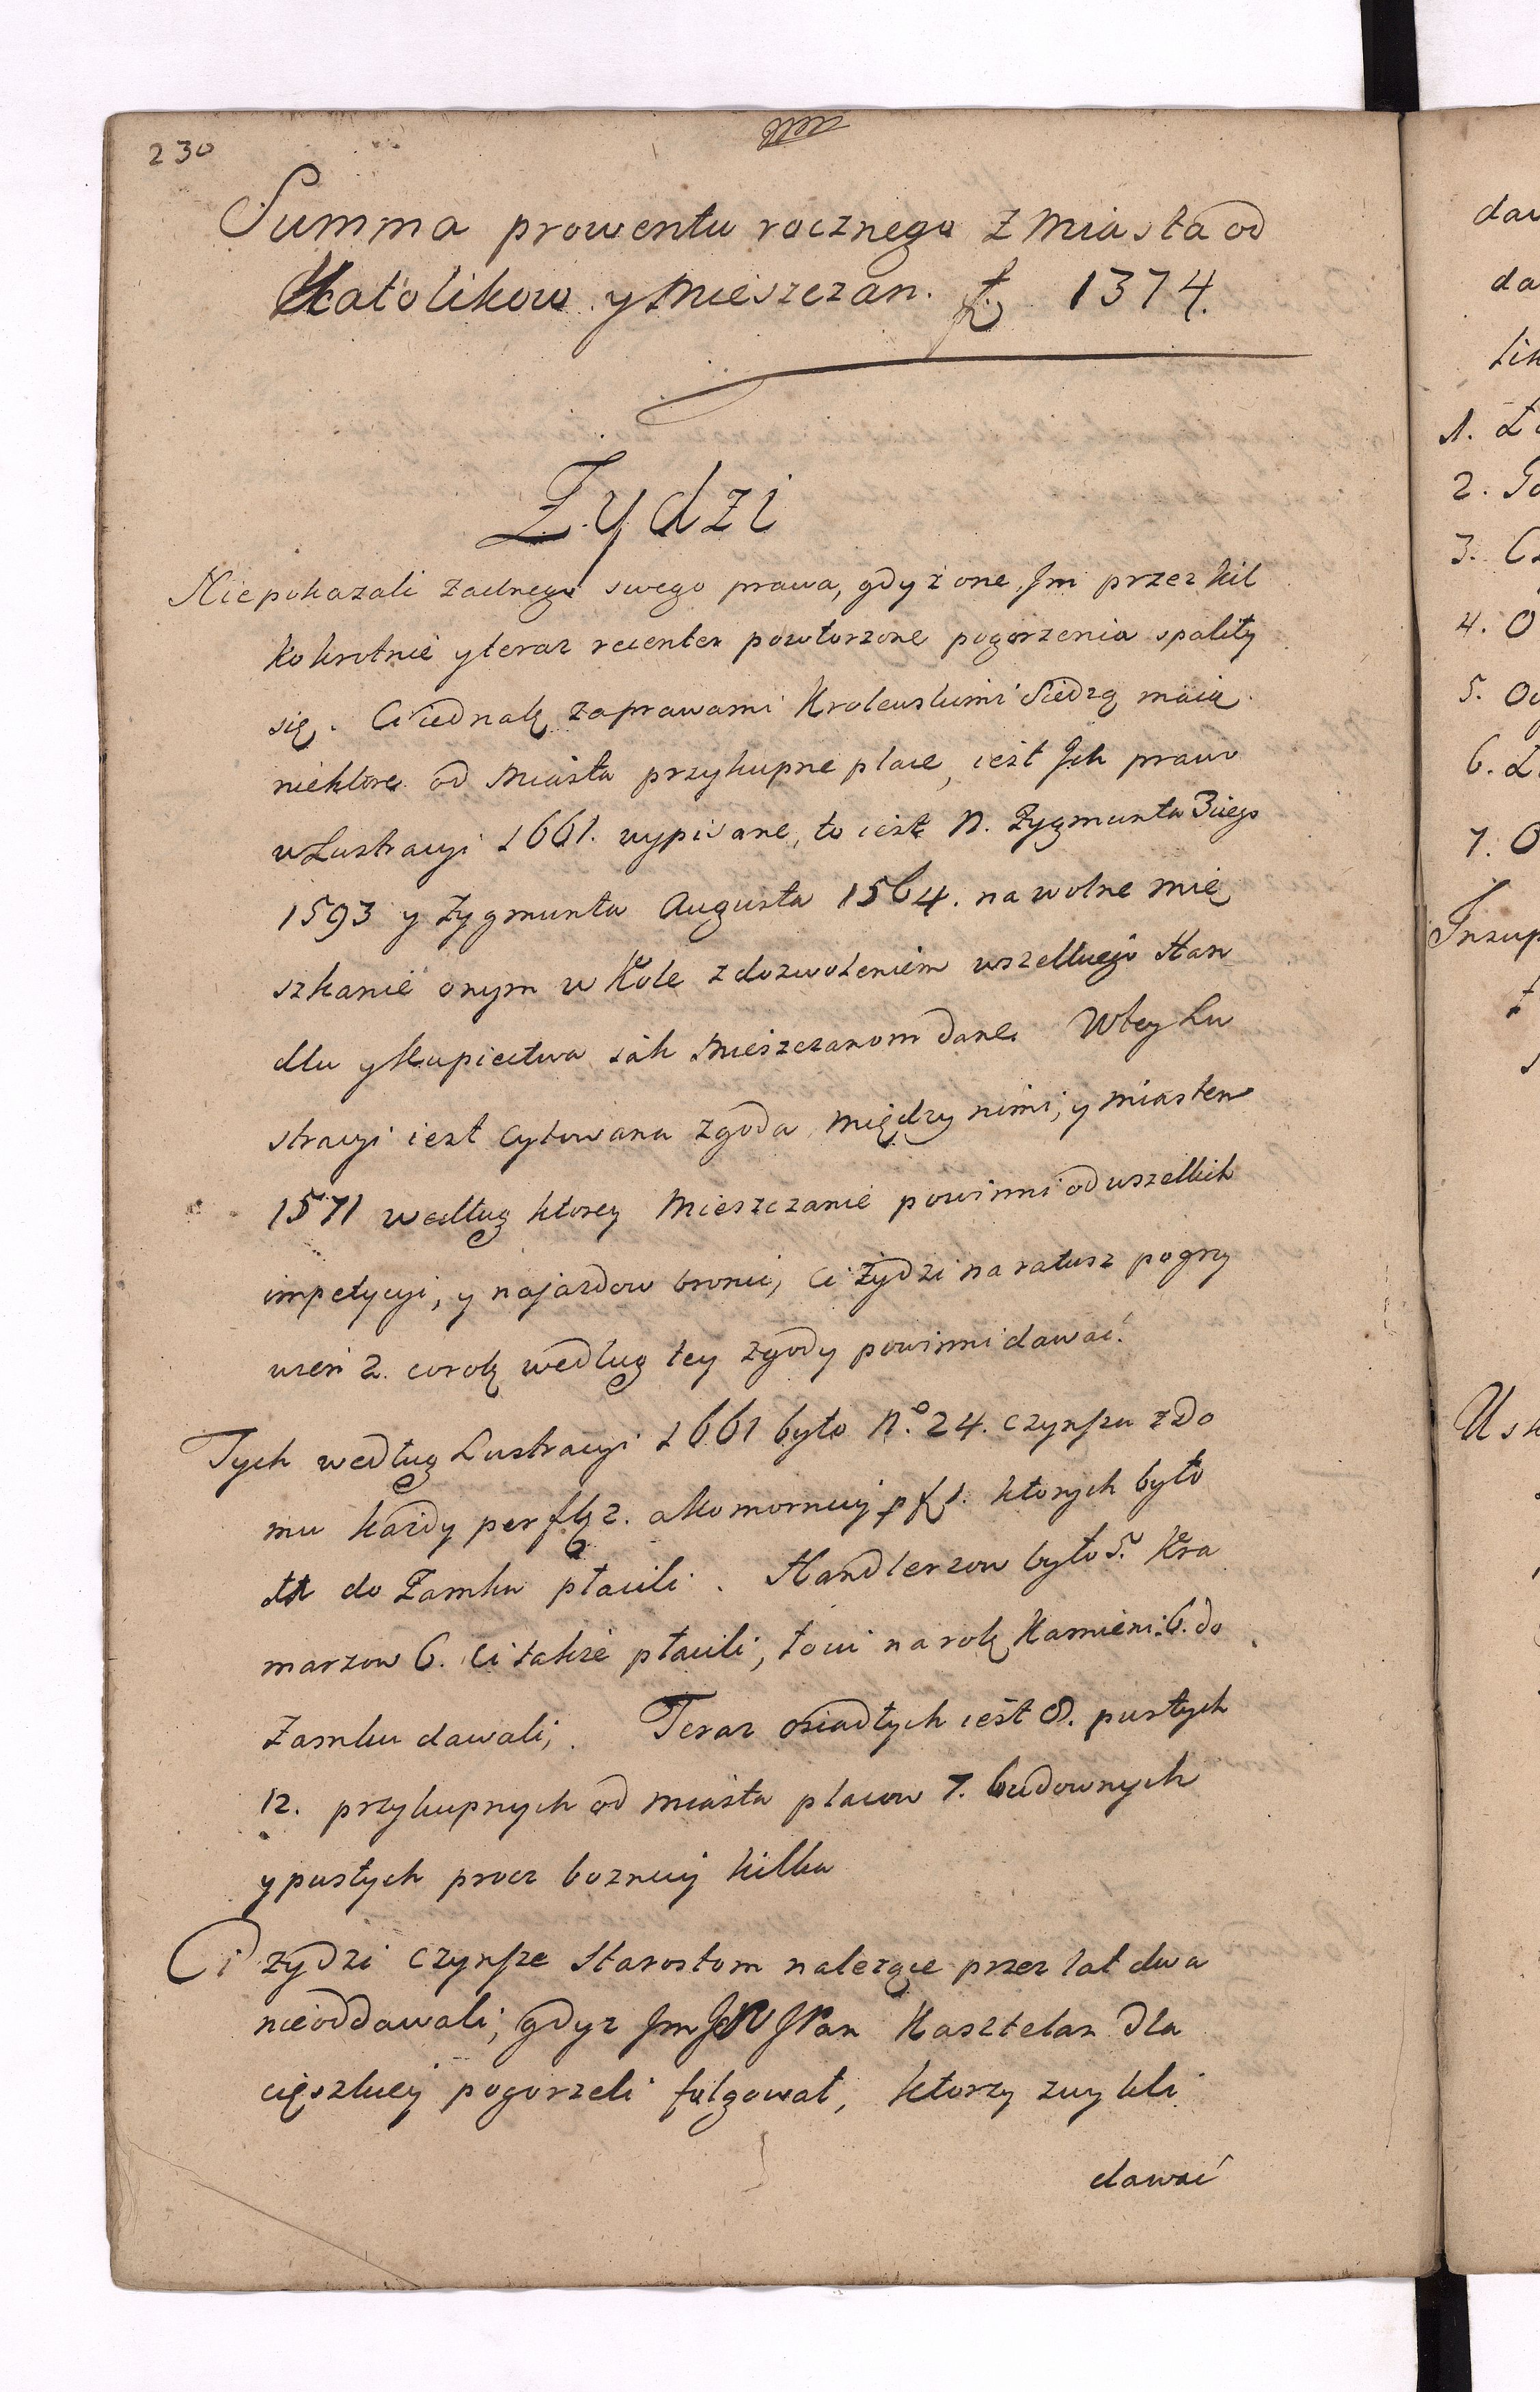 230
Summa prowentu rocznego z Miasta od
Katolikow y Mieszczan. f. 1374.
Żydzi
Nie pokazali żadnego swego prawa, gdyż one Jm przez kil
kokrotnie y teraz recenter powtorzone pogorzenia spality
się. Ci iednak za prawami Krolewskimi Siedzą maią
niektore od Miasta przykupne place, iest Jch prawo
w Lustracyi 1661. wypisane, to iest N. Zygmunta 3ciego
1593 y Zygmunta Augusta 1564. na wolne mie
szkanie onym w Kole z dozwoleniem wszelkiego Han
dlu y kupiectwa iak Mieszczanom dane. W tey Lu
stracyi iest cytowana zgoda między nimi, y miastem
1571 według ktorey Mieszczanie powinni od wszelkich
impetycyi, y najazdow bronić, Ci Żydzi na ratusz pogrzy
wien 2. corok według tey zgody powinni dawać.
Tych według Lustracyi 1661 było No. 24. czynszu z do
mu każdy per fl 2. a komornicy p f 1. ktorych było
do Zamku płacili. Handlerzow było 5. Kra
marzow 6. Ci także płacili, łoiu na rok Kamieni 6. do
Zamku dawali, Teraz osiadłych iest 8. pustych
12. przykupnych od miasta placow 7. budownych
y pustych procz boznicy kilku
Ci żydzi czynsze Starostom należące przez lat dwa
nie oddawali, gdyż Jm Pan Kasztelan dla
cięszkiey pogorzeli folgował, ktorzy zwykli
dawać